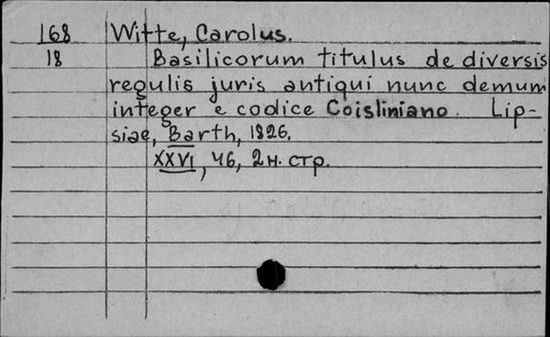 168 Witte, Carolus.
18 Basilicorum titulus de diversis
regulis juris antiqui nunc demum
integer e codice Coisliniano. Lip-
siae, Barth, 1826.
XXVI, 46, 2 н. стр.